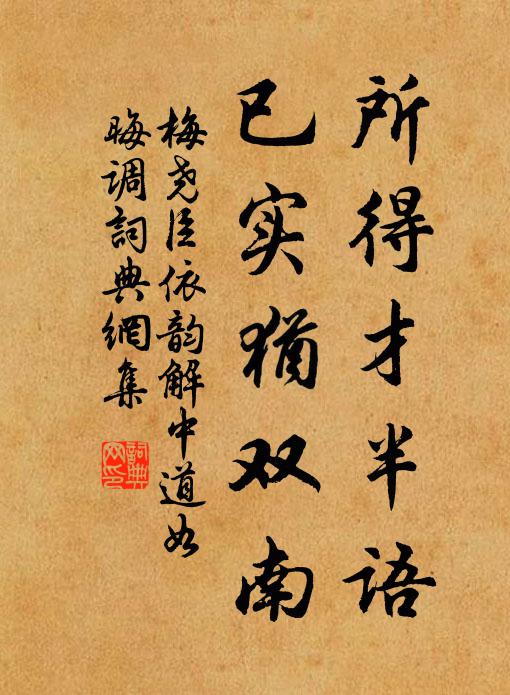 所得才半语
已实犹双南
梅尧臣依韵解中道如
晦调词典網集
詞典
网印